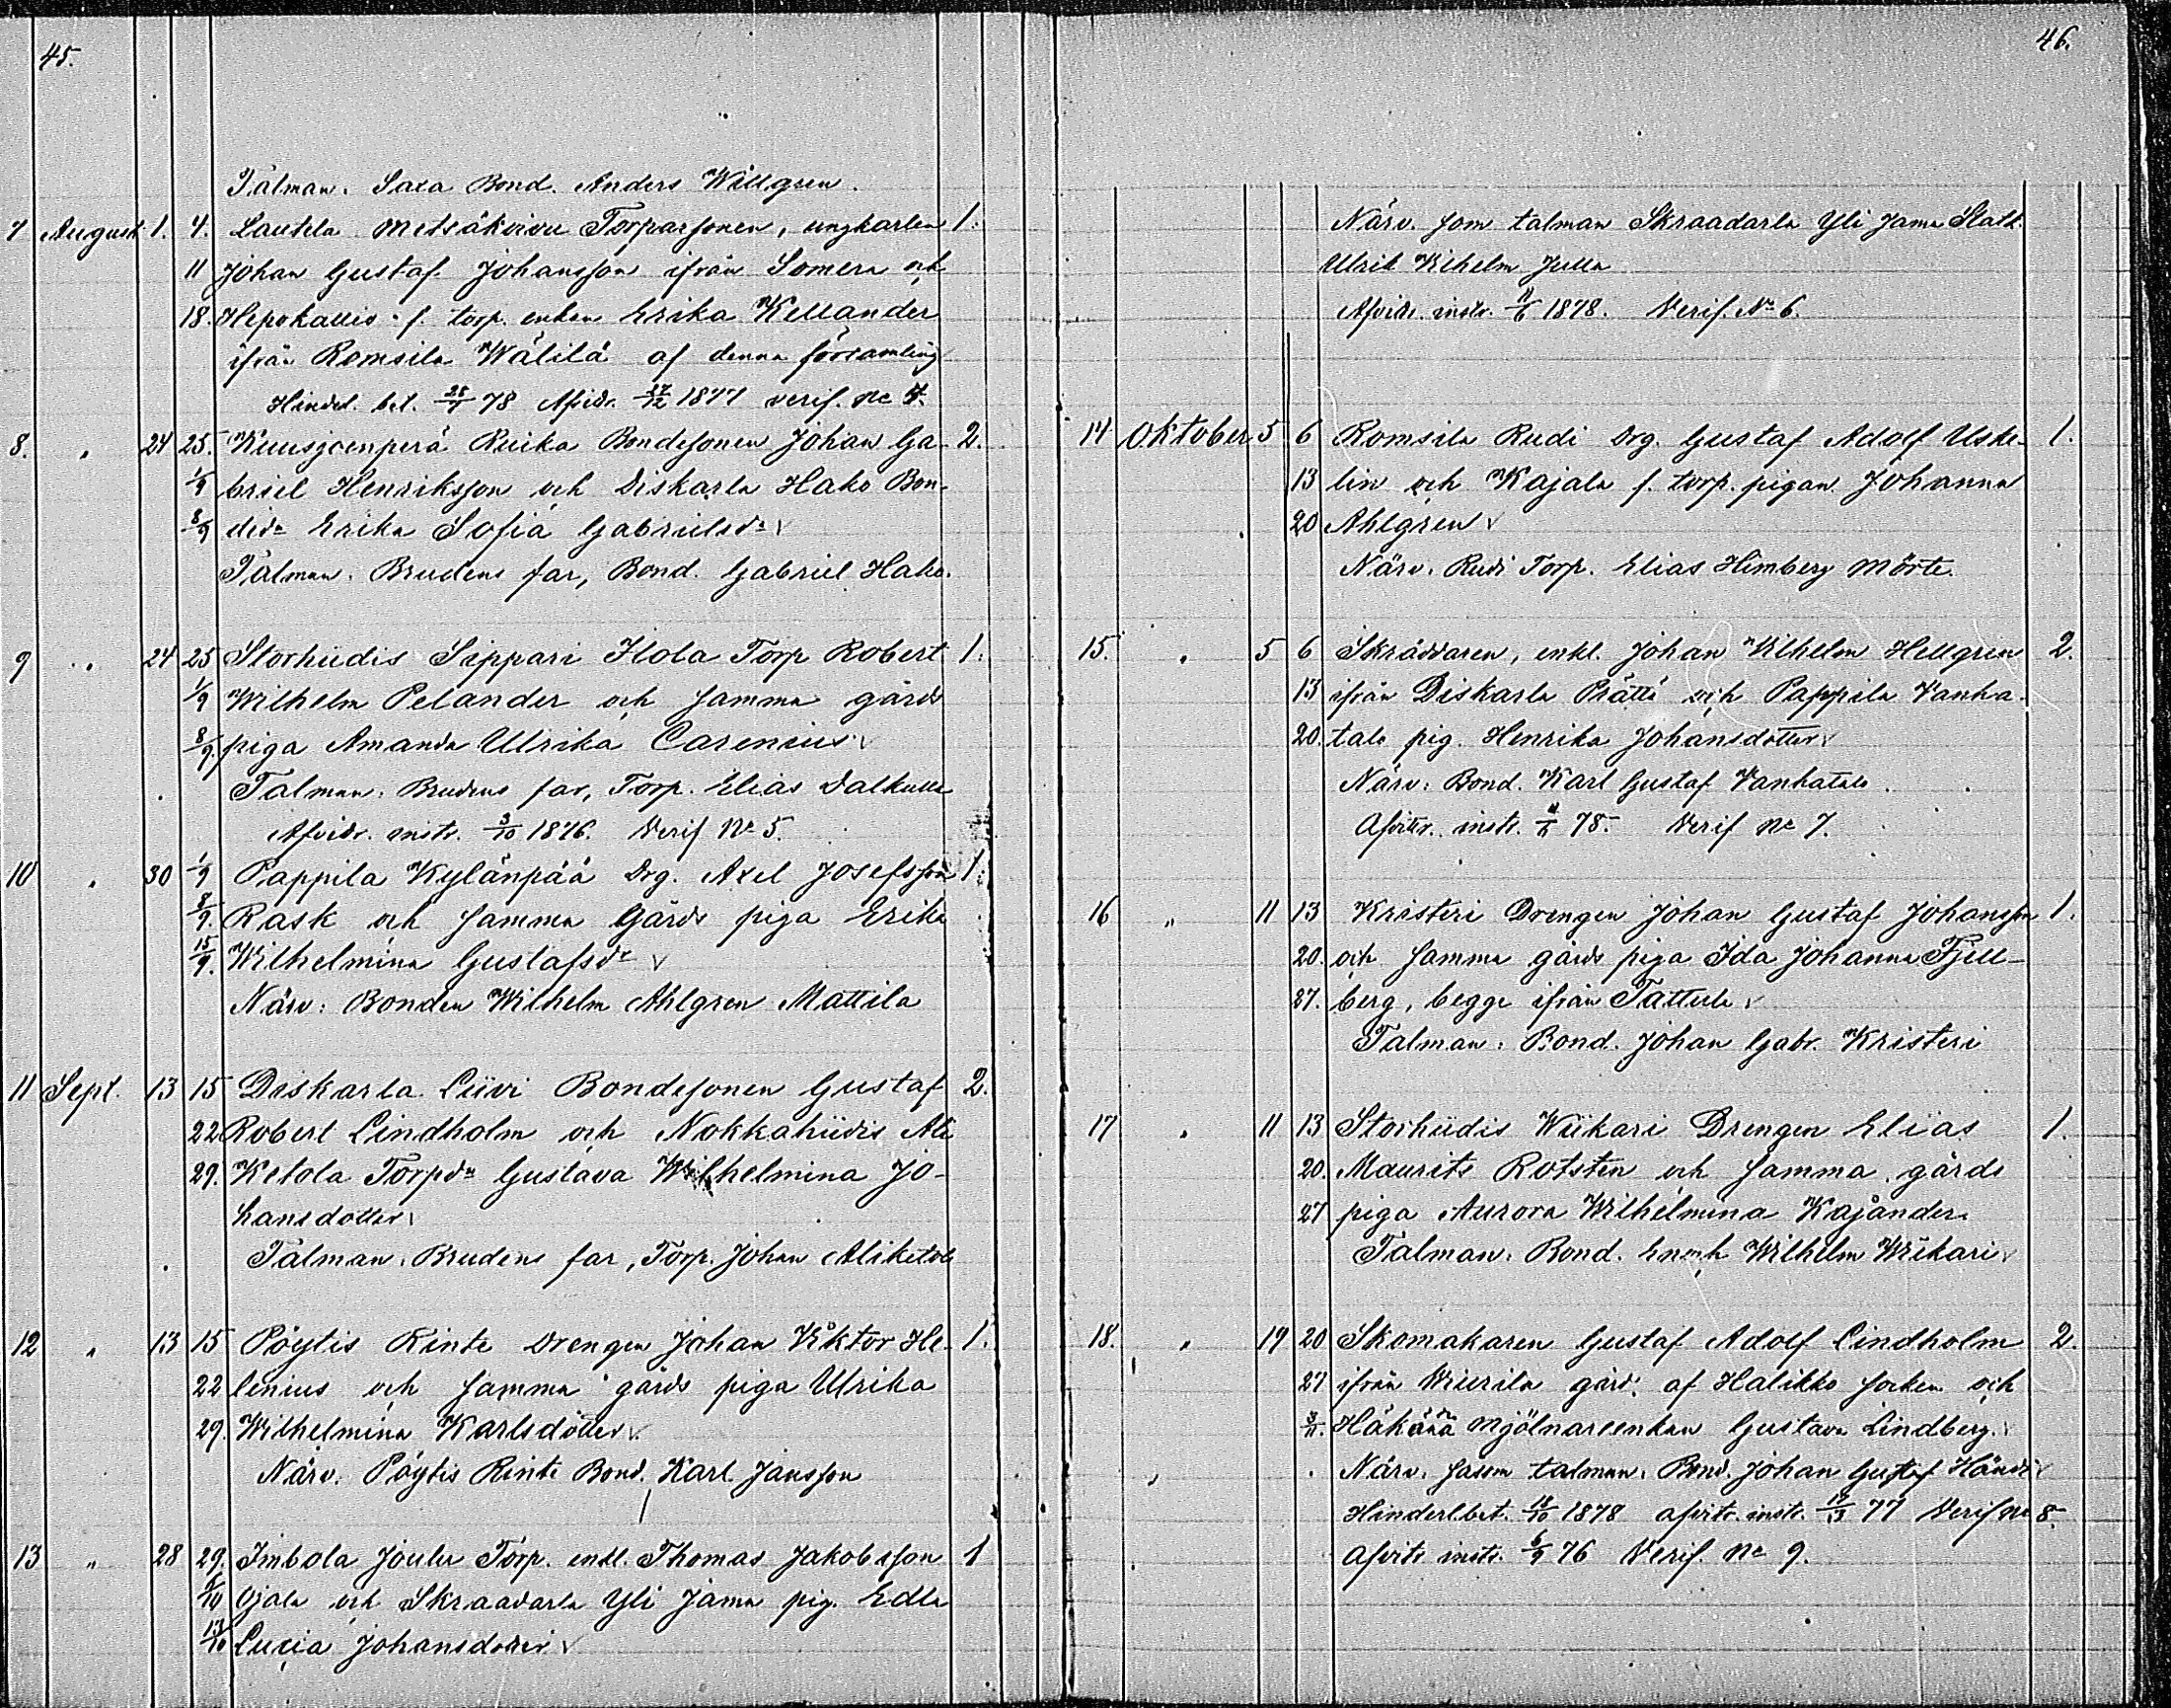 45.
Talman. Saxa Bond. Anders Willgren.
7 August 1. 4. Lautela Metsäkoivu Torparsonen, ungkarlen 1.
11 Johan Gustaf Johansson ifrån Somero och
18. Hepokallio f. torp. enkan Erika Kellander
ifrån Romsila Wälilä af denna församling
Hindsl. bet. 25/7 78 Afvidr. 27/12 1877 verif. No 4.
8. " 24 25. Kuusjoenperä Ruika Bondesonen Johan Ga- 2.
1/9 briel Henriksson och Diskarla Hako Bon-
8/9 dedr Erika Sofia Gabrielsdr
Talman. Brudens far, Bond. Gabriel Hako.
9 " 24 25 Storhiidis Sippari Ilola Torp Robert 1.
1/9 Wilhelm Pelander och samma gårds
8/9. piga Amanda Ulrika Carenius
Talman. Brudens far, Torp. Elias Dalkulla
Afvidr. instr. 3/10 1876. Verif No 5.
10 " 30 1/9 Pappila Kylänpää Drg. Axel Josefsson 1.
8/9. Rask och samma Gårds piga Erika
15/9. Wilhelmina Gustafsdr
Närv: Bonden Wilhelm Ahlgren Mattila
11 Sept. 13 15 Diskarla Liivi Bondesonen Gustaf 2.
22 Robert Lindholm och Nokkahiidis Ali
29. Ketola Torpdr Gustava Wilhelmina Jo-
hansdotter
Talman. Brudens far, Torp. Johan Aliketola
12 " 13 15 Pöytis Rinte Drengen Johan Viktor He- 1.
22 lenius och samma gårds piga Ulrika
29. Wilhelmina Karlsdotter
Närv. Pöytis Rinte Bond. Karl Jansson
13 " 28 29. Inbola Joulu Torp. enkl. Thomas Jakobsson 1
6/10 Ojala och Skraadarla Yli Jama pig. Edla
13/10 Lucia Johansdotter
46.
Närv. som talman Skraadarla Yli Jama Stath.
Ulrik Vilhelm Julla
Afvidr. instr. 1878. Verif. No 6.
14 Oktober 5 6 Romsila Rudi Drg. Gustaf Adolf Uske- 1.
13 lin och Kajala f. torp. pigan Johanna
20 Ahlgren
Närv. Rudi Torp. Elias Himberg Mörte.
15. " 5 6 Skräddaren, enkl. Johan Vilhelm Hellgren 2.
13 ifrån Diskarla Prätti och Pappila Vanha-
20. talo pig. Henrika Johansdotter
Närv: Bond. Karl Gustaf Vanhatalo
Afvitr. instr. 78. Verif No 7.
16 " 11 13 Kristeri Drengen Johan Gustaf Johansson 1.
20. och samma gårds piga Ida Johanna Fjell-
27. berg, begge ifrån Tattula
Talman: Bond. Johan Gabr. Kristeri
17 " 11 13 Storhiidis Wiikari Drengen Elias 1.
20. Maurits Rotsten och samma gårds
27 piga Aurora Wilhelmina Kajander.
Talman. Bond. Enoch Wilhelm Wikari
18. " 19 20 Skomakaren Gustaf Adolf Lindholm 2.
27 ifrån Wiurila gård af Halikko socken och
3/11. Mjölnareenkan Gustava Lindberg.
Närv. såsom talman. Bond. Johan Gustaf Händi
Hinderlbet. 18/10 1878 afvitr. instr. 77 Verif No 8.
Afvitr instr. 6/9 76 Verif. No 9.